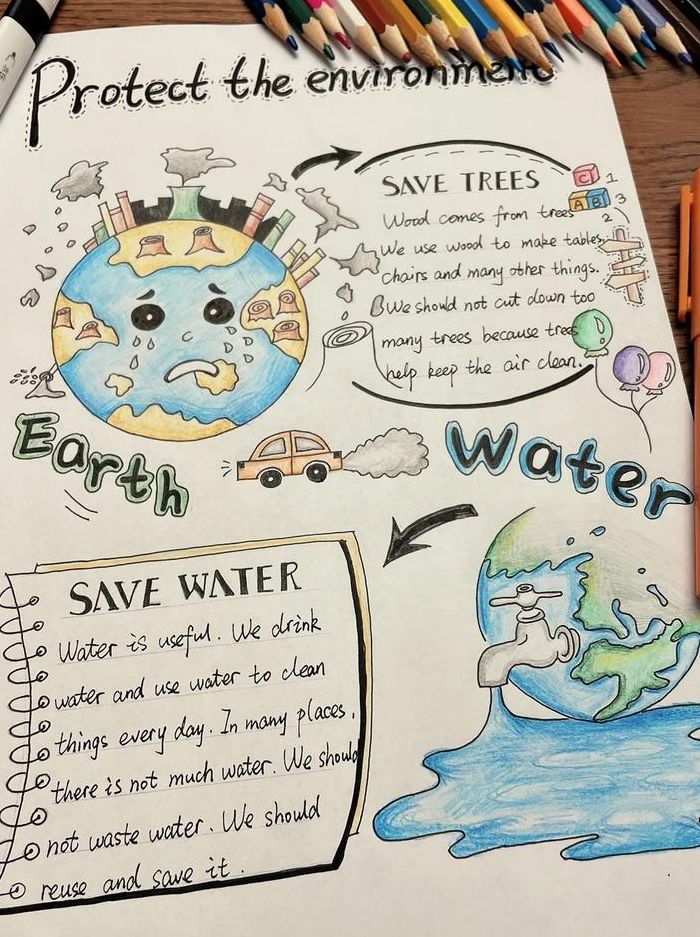 Protect the environment
SAVE TREES
C 1
A B 3
2
Wood comes from trees
We use wood to make tables,
chairs and many other things.
We should not cut down too
many trees because trees
help keep the air clean.
Earth
Water
SAVE WATER
Water is useful. We drink
water and use water to clean
things every day. In many places,
there is not much water. We should
not waste water. We should
reuse and save it.